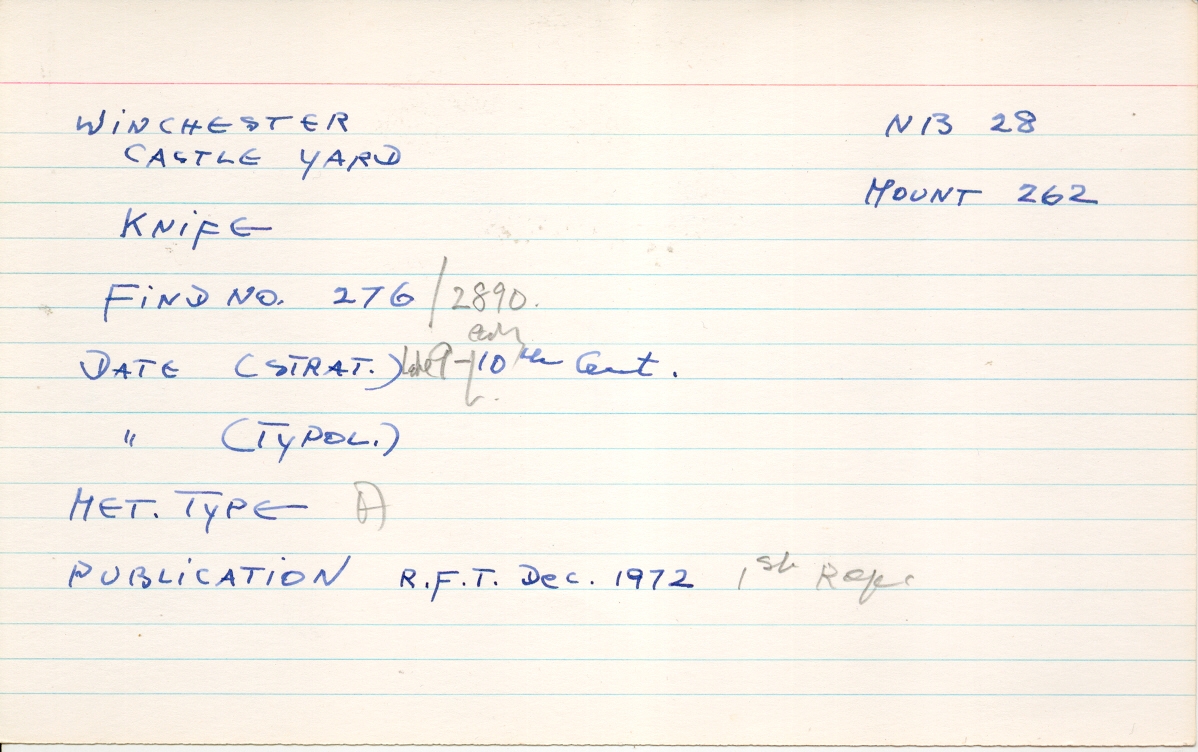 WINCHESTER NB 28
CASTLE YARD
MOUNT 262
KNIFE
FIND NO. 276 / 2890.
DATE (STRAT.) late 9 - 10th Cent.
" (TYPOL.)
MET. TYPE A
PUBLICATION R.F.T. Dec. 1972 1st